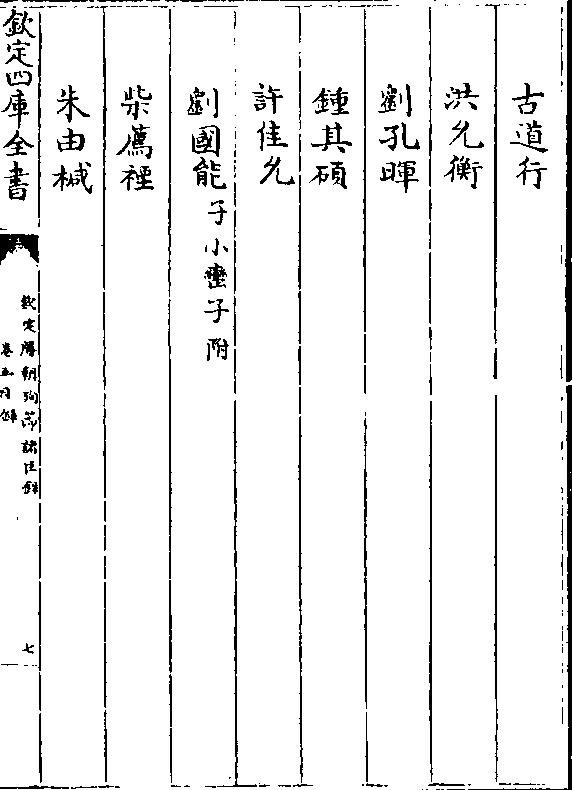 古道行
洪允衡
劉孔暉
鍾其碩
許佳允
劉國能子小蠻子附
柴薦禋
朱由椷
欽定四庫全書
欽定勝朝殉節諸臣錄
卷五目錄
七